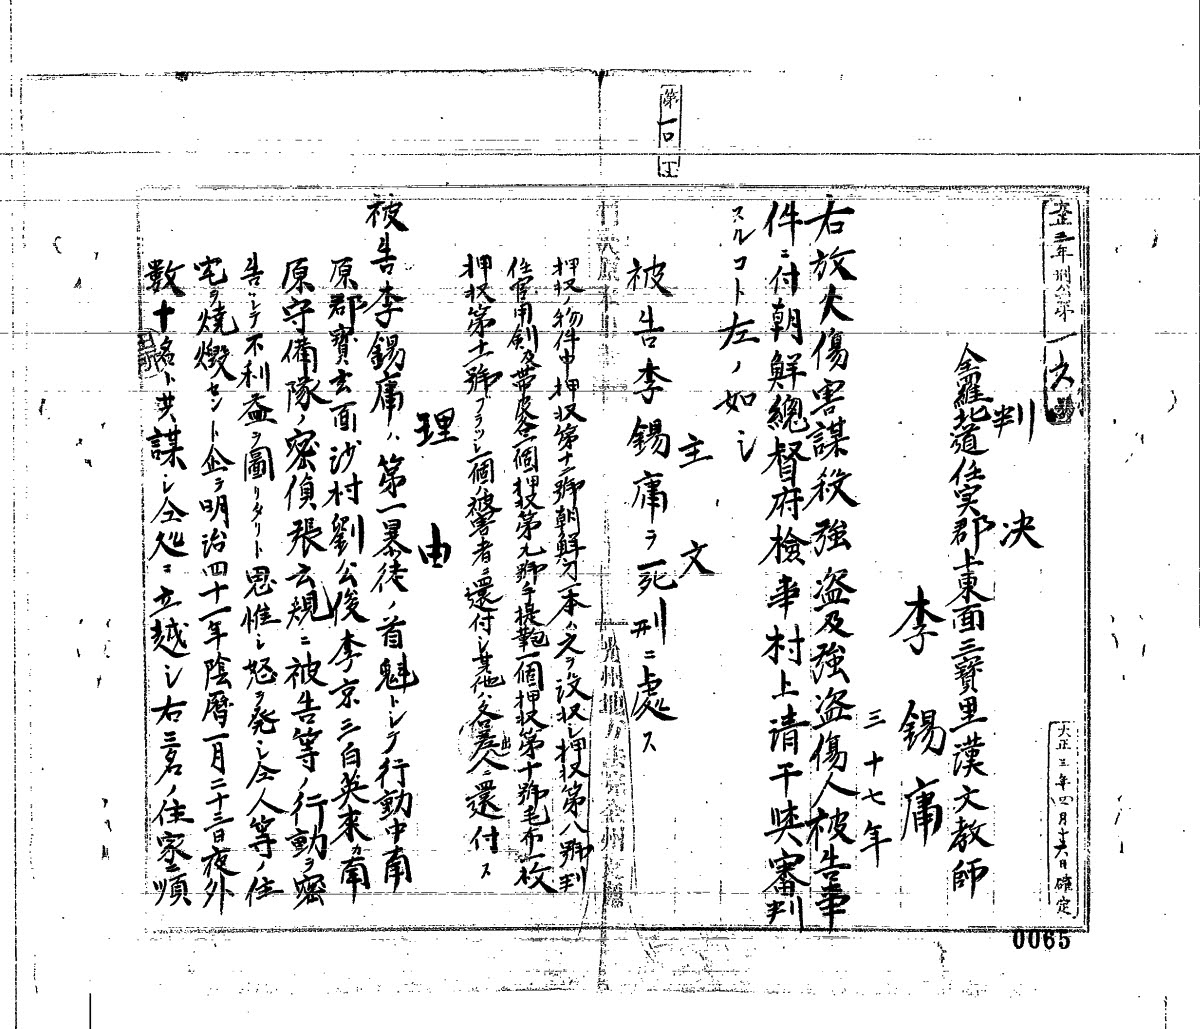 第一〇
正三年刑公第一六號
大正三年四月十六日確定
判決
全羅北道任実郡上東面三寶里漢文教師
李錫庸
三十七年
右放火傷害謀殺強盗及強盗傷人被告事
件ニ付朝鮮總督府檢事村上清干與審判
スルコト左ノ如シ
主文
被告李錫庸ヲ死刑ニ處ス
押収ノ物件中押収第十二號朝鮮刀一本ハ之ヲ没収シ押収第八號判
任官用剣及帯皮各一個押収第九號手提鞄一個押収第十號毛布一枚
押収第十一號ブラッシ一個ハ被害者ニ還付シ其他ハ各差出人ニ還付ス
理由
被告李錫庸ハ第一暴徒ノ首魁トシテ行動中南
原郡寶玄面沙村劉公俊李京三白英来カ南
原守備隊ノ密偵張云規ニ被告等ノ行動ヲ密
告シテ不利益ヲ圖リタリト思惟シ怒ヲ発シ仝人等ノ住
宅ヲ燒燬セント企テ明治四十一年陰暦一月二十三日夜外
數十名ト共謀シ仝処ニ立越シ右三名ノ住家ニ順
光州地方法院全州支廳
0065